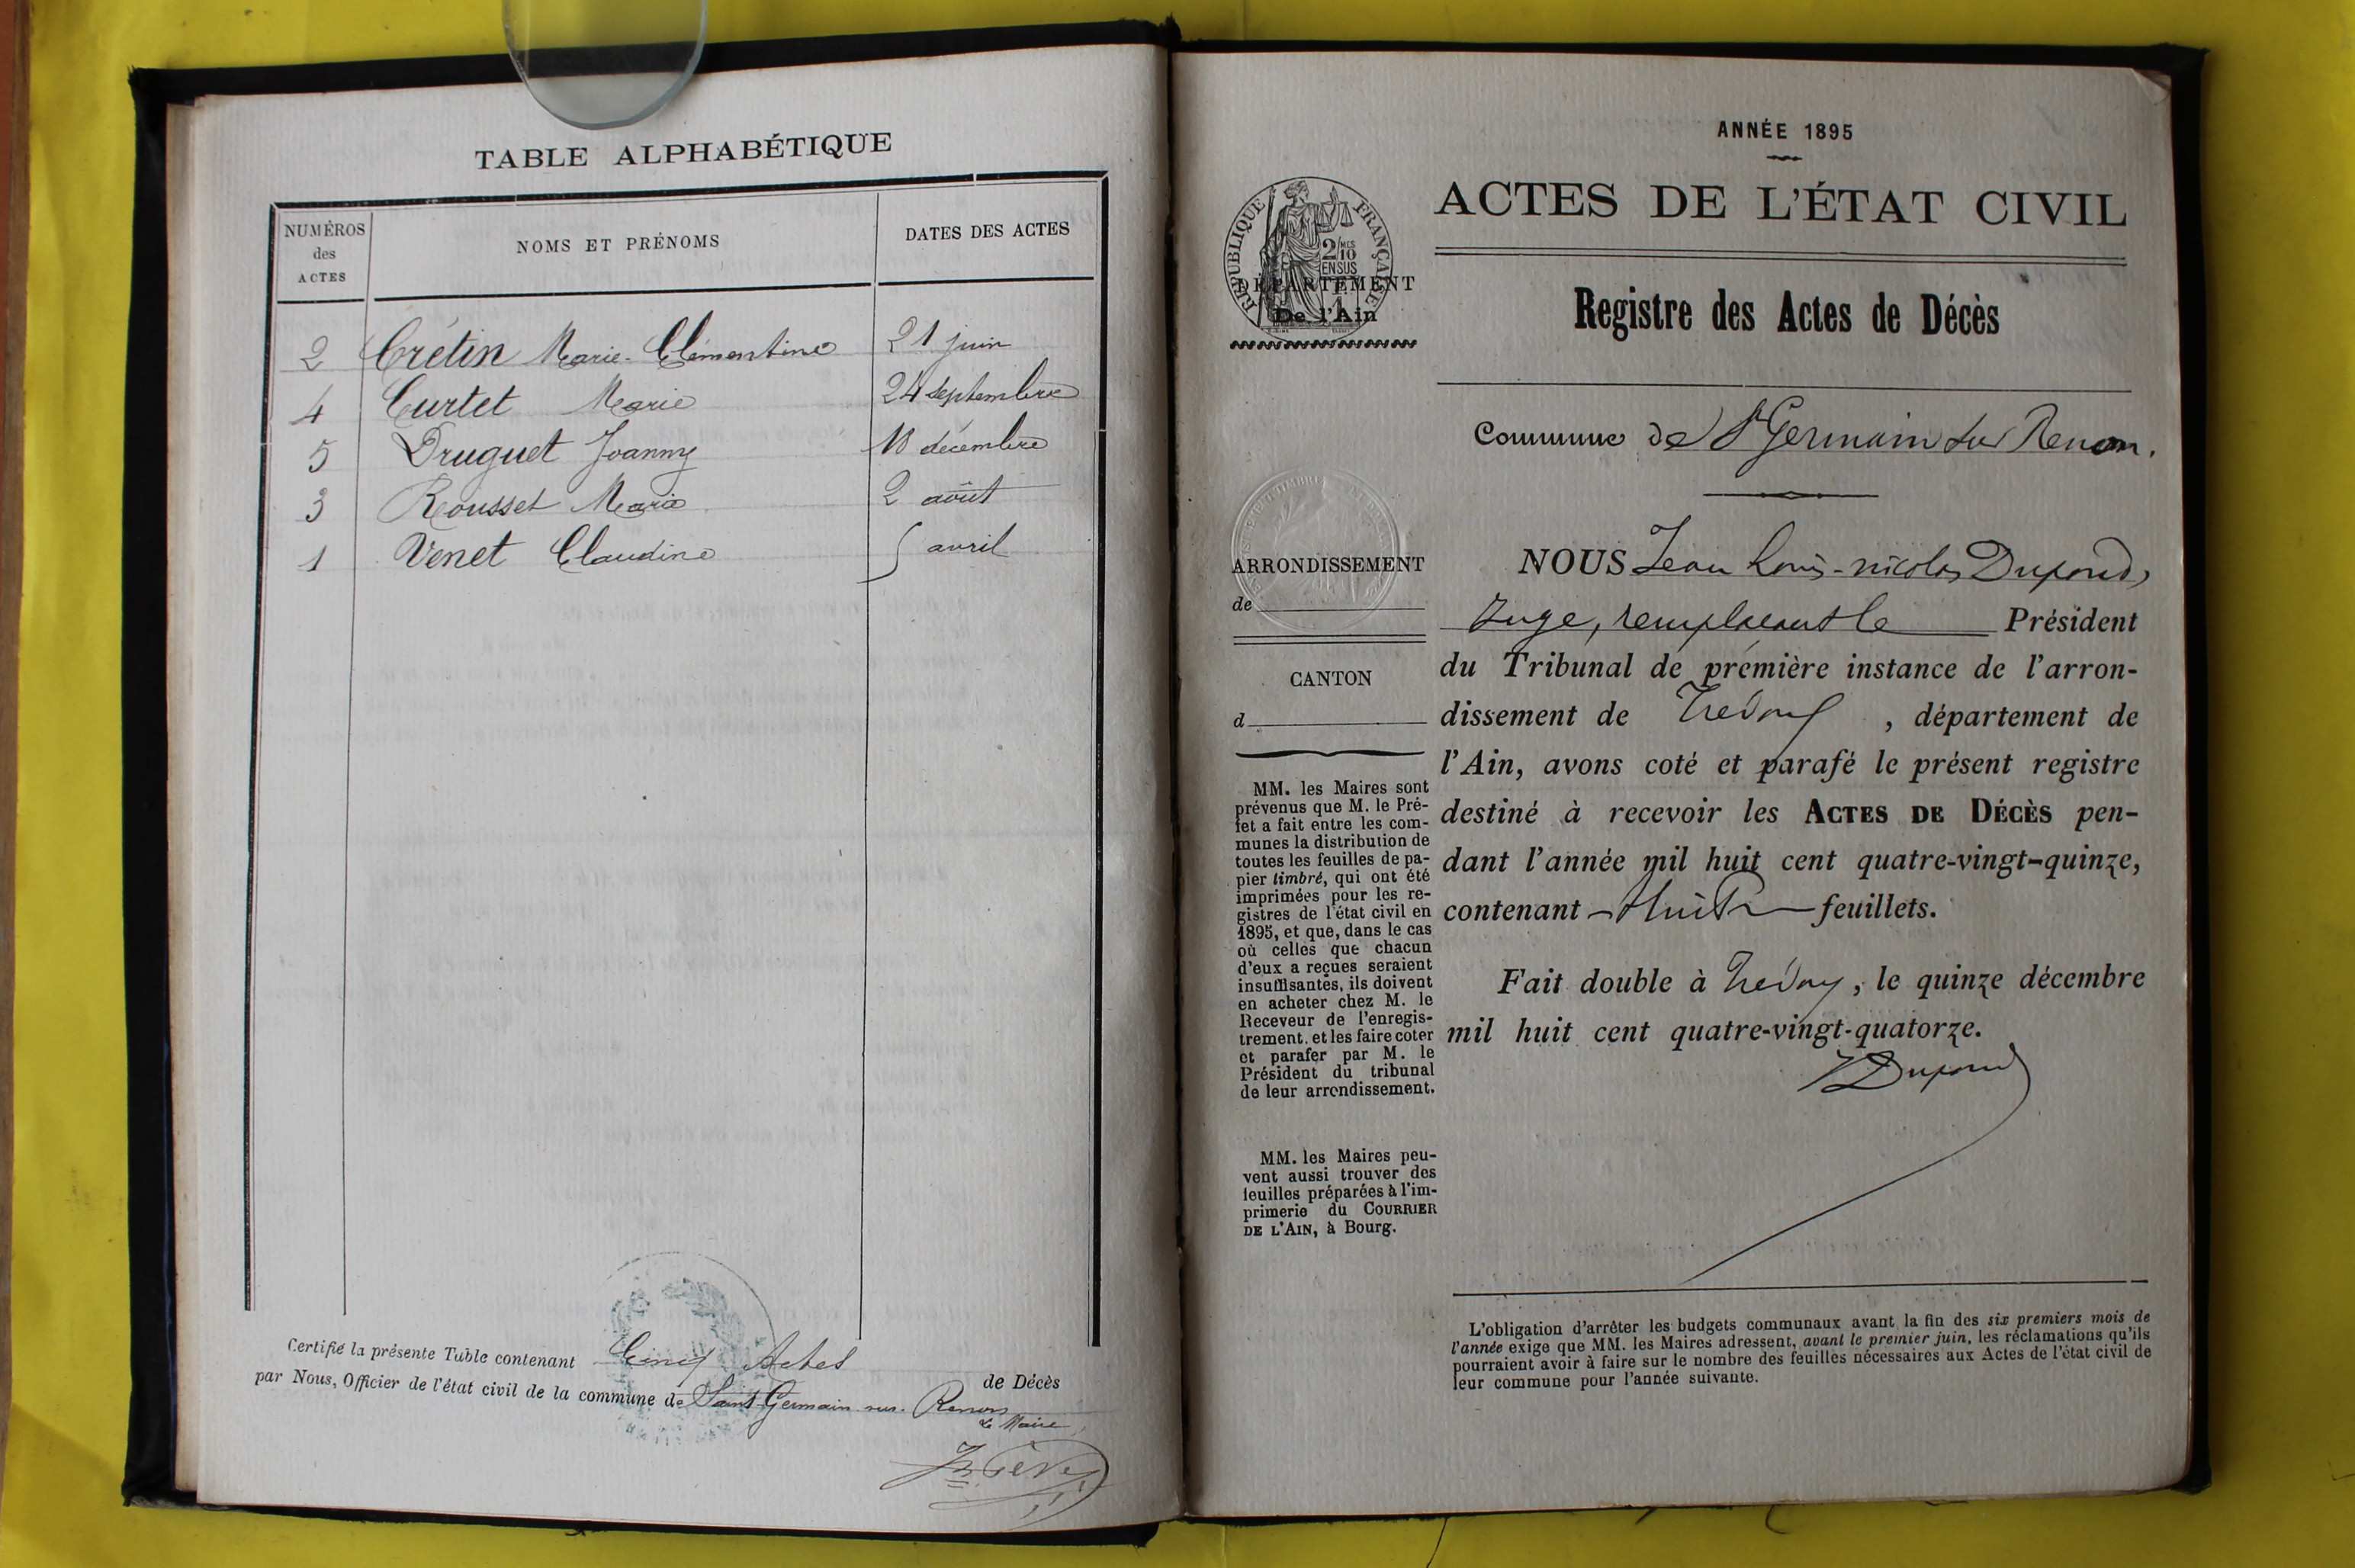 TABLE ALPHABÉTIQUE
NUMÉROS
des
ACTES
NOMS ET PRÉNOMS
DATES DES ACTES
2 Crétin Marie-Clémentine 21 juin
4 Curtet Marie 24 septembre
5 Druguet Joanny 10 décembre
3 Rousset Marie 2 août
1 Venet Claudine 5 avril
Certifié la présente Table contenant Cinq Actes
de Décès
par Nous, Officier de l'état civil de la commune de Saint-Germain sur-Renon
Le Maire
ANNÉE 1895
ACTES DE L'ÉTAT CIVIL
RÉPUBLIQUE FRANÇAISE
2/10
MES
EN SUS
DÉPARTEMENT
De l'Ain
Registre des Actes de Décès
Commune de St Germain sur Renon.
ARRONDISSEMENT
de
CANTON
d
MM. les Maires sont
prévenus que M. le Pré-
fet a fait entre les com-
munes la distribution de
toutes les feuilles de pa-
pier timbré, qui ont été
imprimées pour les re-
gistres de l'état civil en
1895, et que, dans le cas
où celles que chacun
d'eux a reçues seraient
insuffisantes, ils doivent
en acheter chez M. le
Receveur de l'enregis-
trement. et les faire coter
et parafer par M. le
Président du tribunal
de leur arrondissement.
MM. les Maires peu-
vent aussi trouver des
feuilles préparées à l'im-
primerie du COURRIER
DE L'AIN, à Bourg.
NOUS Jean Louis-nicolas Dupond,
Juge, remplacant le Président
du Tribunal de première instance de l'arron-
dissement de Trévoux, département de
l'Ain, avons coté et parafé le présent registre
destiné à recevoir les ACTES DE DÉCÈS pen-
dant l'année mil huit cent quatre-vingt-quinze,
contenant huit feuillets.
Fait double à Trévoux, le quinze décembre
mil huit cent quatre-vingt-quatorze.
Dupond
L'obligation d'arrêter les budgets communaux avant la fin des six premiers mois de
l'année exige que MM. les Maires adressent, avant le premier juin, les réclamations qu'ils
pourraient avoir à faire sur le nombre des feuilles nécessaires aux Actes de l'état civil de
leur commune pour l'année suivante.